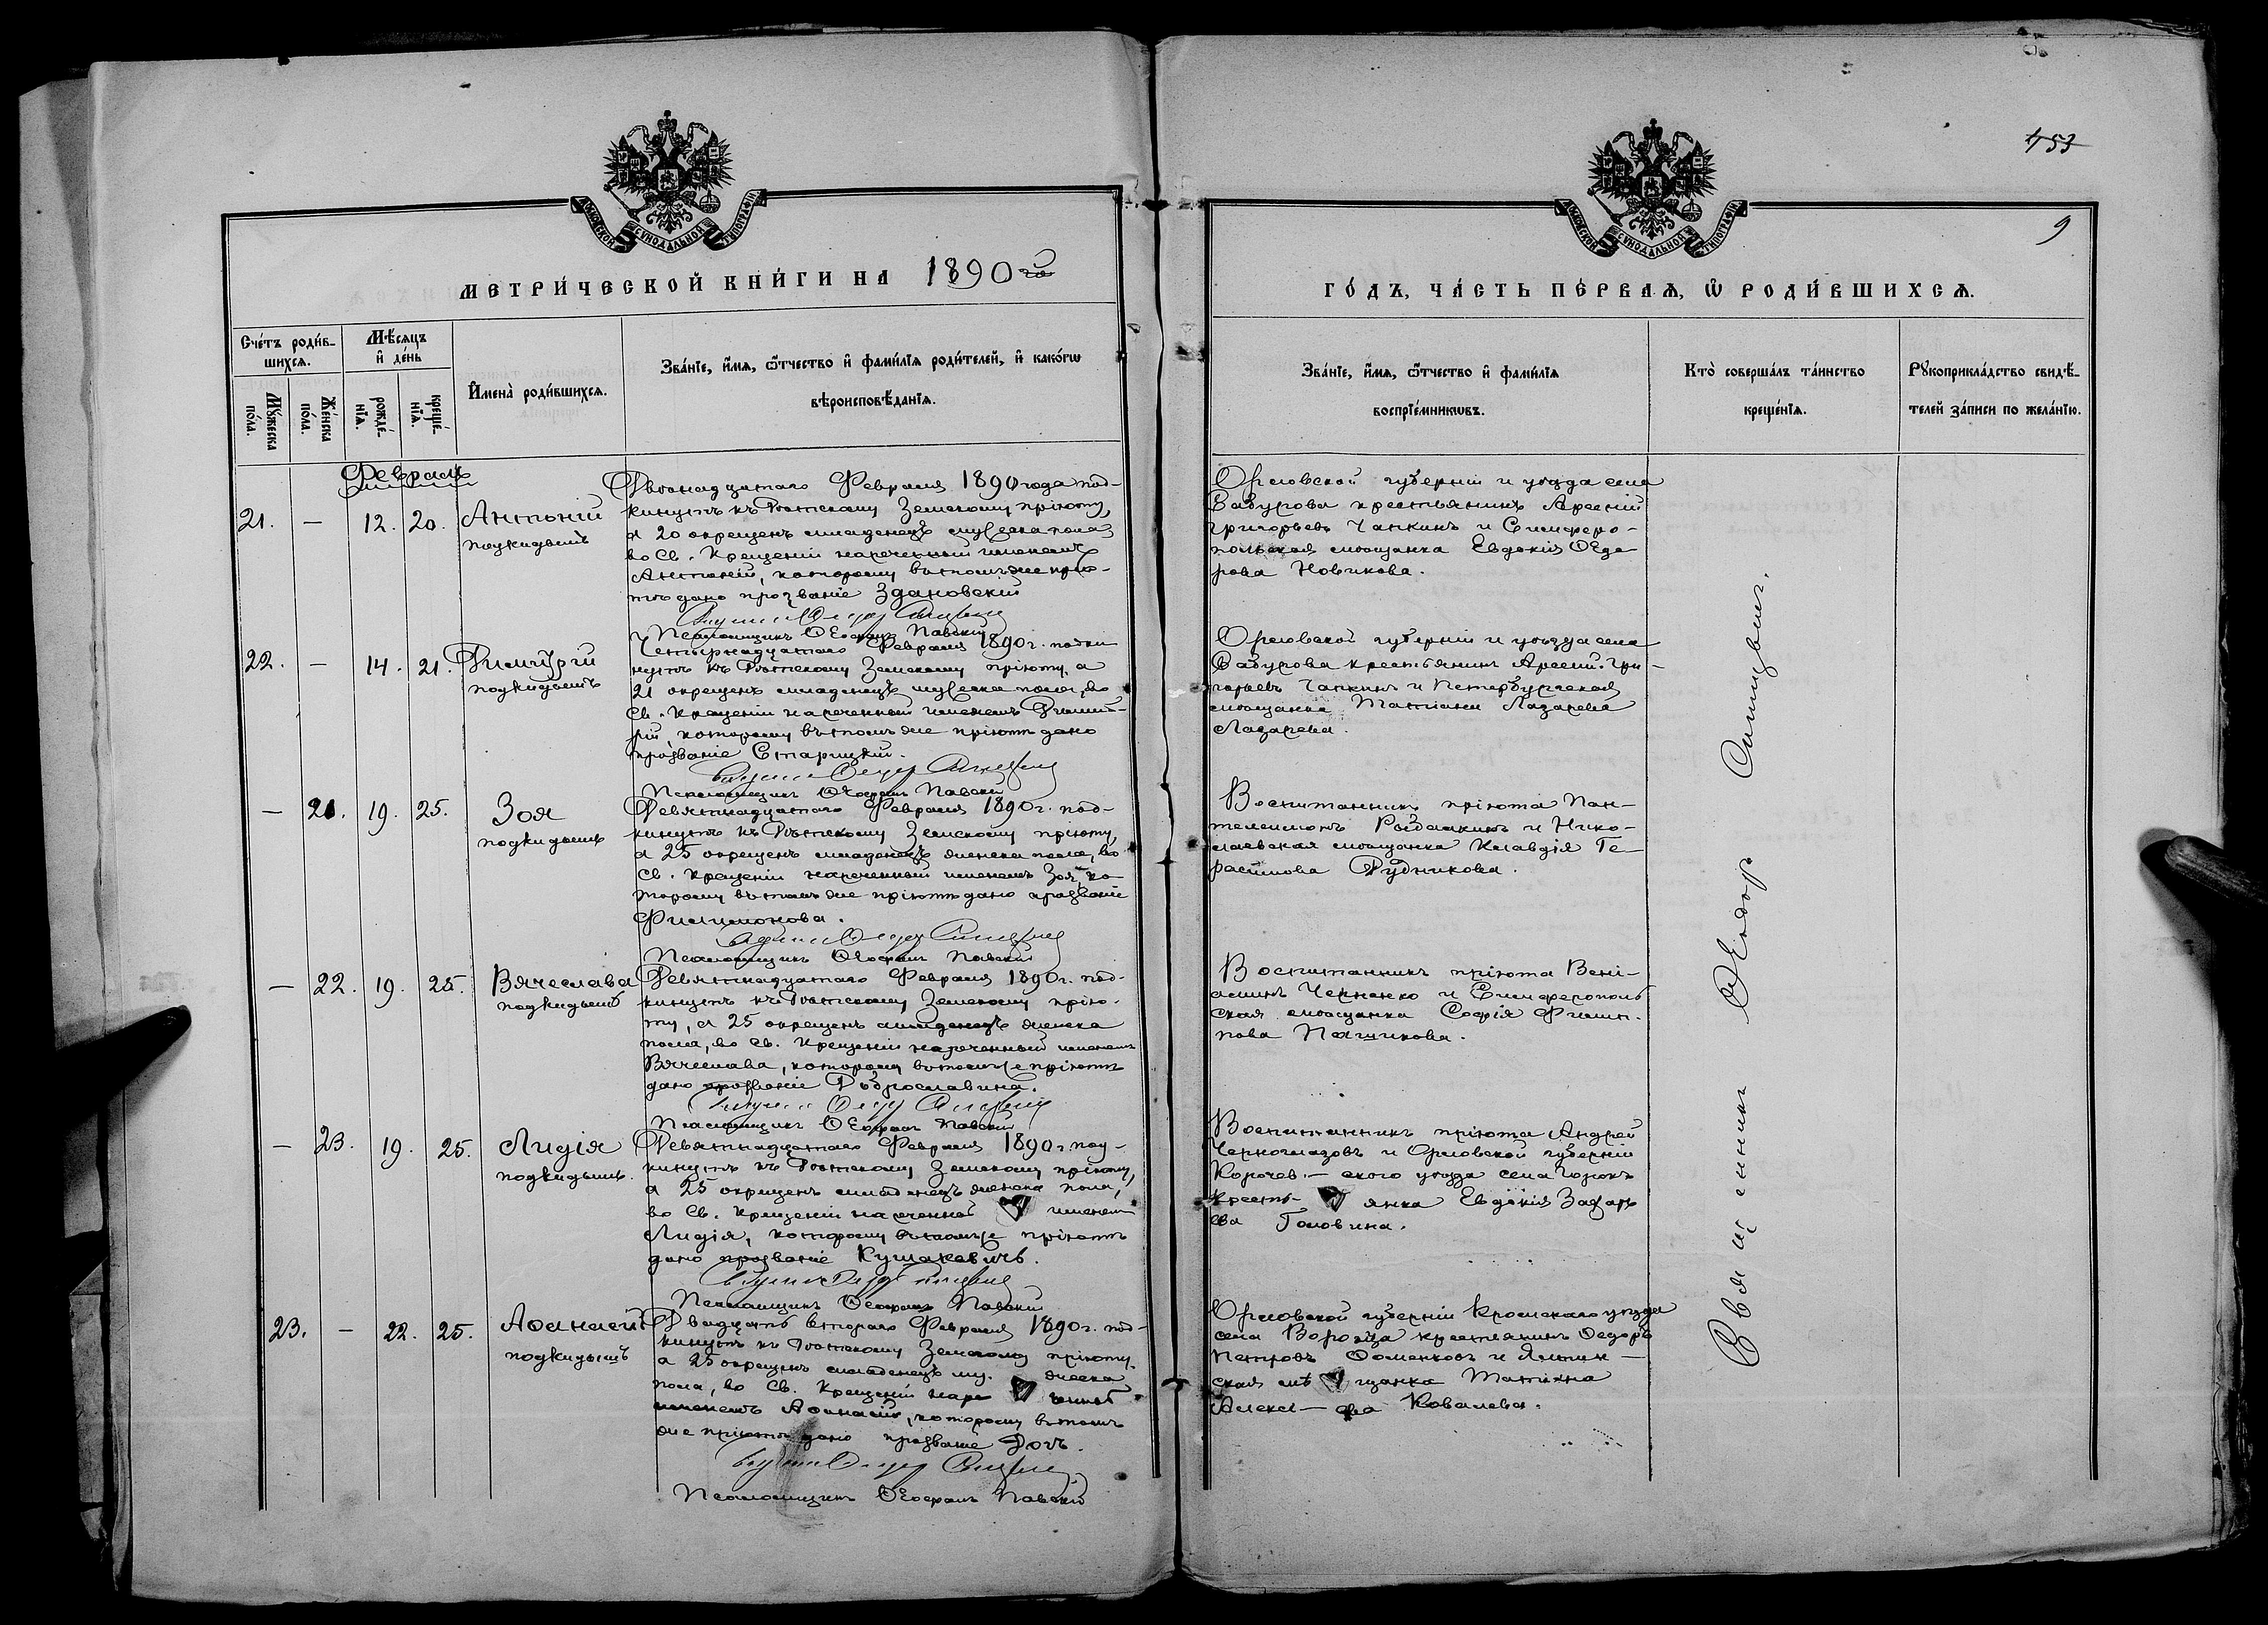 453
9
МОСКОВСКОЙ СѴНОДАЛЬНОЙ ТИПОГРАФІИ
МОСКОВСКОЙ СѴНОДАЛЬНОЙ ТИПОГРАФІИ
МЕТРИ́ЧЕСКОЙ КНИ́ГИ НА 1890 го
ГО́ДЪ, ЧА́СТЬ ПЕ́РВАѦ, Ѡ҆ РОДИ́ВШИХСѦ.
Сче́тъ роди́в-
шихсѧ.
Мѣ́сѧцъ
и҆ де́нь
Мꙋ́жеска
по́ла.
Же́нска
по́ла.
рожде́-
нїѧ.
креще́-
нїѧ.
И҆мена̀ роди́вшихсѧ.
Зва́нїе, и҆́мѧ, ѻ҆́тчество и҆ фами́лїѧ роди́телей, и҆ како́гѡ
вѣроисповѣ́данїѧ.
Зва́нїе, и҆́мѧ, ѻ҆́тчество и҆ фами́лїѧ
воспрїе́мникѡвъ.
Кто̀ соверша́лъ та́инство
креще́нїѧ.
Рꙋкоприкла́дство свидѣ́-
телей за́писи по жела́нїю.
Февраль
21. — 12. 20. Антоній
подкидышъ
Двѣнадцатаго Февраля 1890 года под-
кинутъ къ Дѣтскому Земскому пріюту,
а 20 окрещенъ младенецъ мужеска пола,
во Св. Крещеніи нареченный именемъ
Антоній, которому въ томъ же прію-
тѣ дано прозваніе Здановскій
Псаломщикъ Ѳеофанъ Павскій
Орловской губерніи и уѣзда села
Сабурова крестьянинъ Арсеній
Григорьевъ Чапкинъ и Симферо-
польская мѣщанка Евдокія Ѳедо-
рова Новикова.
22. — 14. 21. Димитрій
подкидышъ
Четырнадцатаго Февраля 1890 г. подки
нутъ къ Дѣтскому Земскому пріюту, а
21 окрещенъ младенецъ мужеска пола, во
Св. Крещеніи нареченный именемъ Димит-
рій, которому въ томъ же пріютѣ дано
прозваніе Старицкій.
Псаломщикъ Ѳеофанъ Павскій
Орловской губерніи и уѣзда села
Сабурова крестьянинъ Арсеній Гри-
горьевъ Чапкинъ и Петербургская
мѣщанка Татіана Лазарева
Лазарева.
— 21. 19. 25. Зоя
подкидышъ
Девятнадцатаго Февраля 1890 г. под-
кинутъ къ Дѣтскому Земскому пріюту,
а 25 окрещенъ младенецъ женска пола, во
Св. Крещеніи нареченный именемъ Зоя, ко-
торому въ томъ же пріютѣ дано прозваніе
Филимонова.
Псаломщикъ Ѳеофанъ Павскій
Воспитанникъ пріюта Пан-
телеимонъ Рыбалкинъ и Нико-
лаевская мѣщанка Клавдія Ге-
расимова Рудникова.
— 22. 19. 25. Вячеслава
подкидышъ
Девятнадцатаго Февраля 1890 г. под-
кинутъ къ Дѣтскому Земскому прію-
ту, а 25 окрещенъ младенецъ женска
пола, во Св. Крещеніи нареченный именемъ
Вячеслава, которому въ томъ же пріютѣ
дано прозваніе Доброславина.
Псаломщикъ Ѳеофанъ Павскій
Воспитанникъ пріюта Вені-
аминъ Черненко и Симферополь
ская мѣщанка Софія Филип-
пова Пащикова.
— 23. 19. 25. Лидія
подкидышъ.
Девятнадцатаго Февраля 1890 г. под-
кинутъ къ Дѣтскому Земскому пріюту,
а 25 окрещенъ младенецъ женска пола,
во Св. Крещеніи нареченный именемъ
Лидія, которому въ томъ же пріютѣ
дано прозваніе Кушакевичъ.
Псаломщикъ Ѳеофанъ Павскій
Воспитанникъ пріюта Андрей
Черноглазовъ и Орловской губерніи
Корочев- скаго уѣзда села Горокъ
кресть- янка Евдокія Захарь
ева Головина.
23. — 22. 25. Аѳанасій
подкидышъ
Двадцать втораго Февраля 1890 г. под-
кинутъ къ Дѣтскому Земскому пріюту,
а 25 окрещенъ младенецъ му- жеска
пола, во Св. Крещеніи наре ченный
именемъ Аѳанасій, которому въ томъ
же пріютѣ дано прозваніе
Псаломщикъ Ѳеофанъ Павскій
Орловской губерніи Кромскаго уѣзда
села крестьянинъ Ѳедоръ
Петровъ Ѳоменковъ и Ялтин-
ская мѣ щанка Татіана
Алексѣ- ева Ковалева.
Священникъ Ѳеодоръ